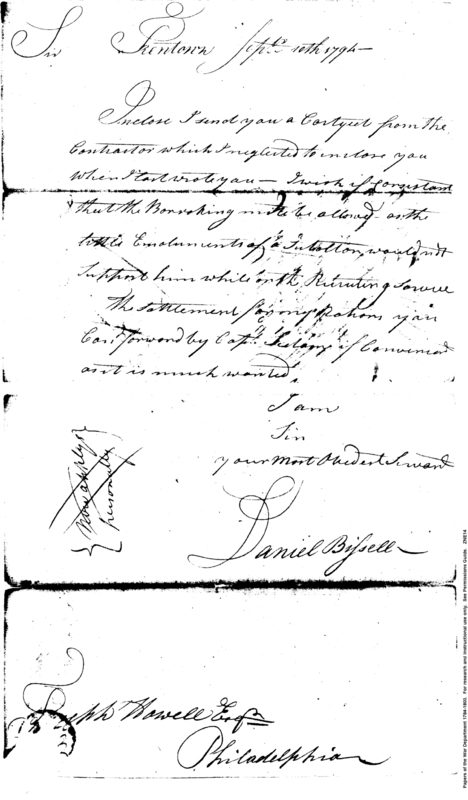 Sir Trentown Septr 10th 1794 —
Inclose I send you a from the
Contractor which I neglected to inclose you
When I last wrote you — I wish if Consistant
that the be allowed as the
Emoluments of a would not
Support him while on the Service
the settlement for my Rations you
forward by Capt. if Convenient
as it is much wanted.
I am
Sir
your Most Obedient Servant
Daniel Bissell
{ Now apply
personally }
Joseph Howell Esqr
Philadelphia
Papers of the War Department 1784-1800. For research and instructional use only. See Permissions Guide. ZNE14